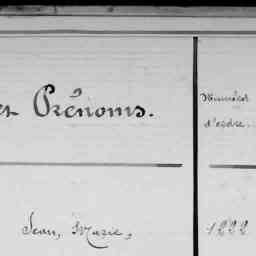 et Prénoms.
Numéros
d'ordre.
Jean, Marie,
1222